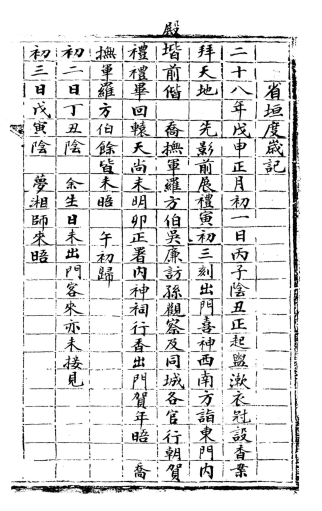 省垣度歲記
二十八年戊申正月初一日丙子陰丑正起盥漱衣冠設香案
拜天地　先影前展禮寅初三刻出門喜神西南方詣東門內
殿
堦前偕　喬撫軍羅方伯吳廉訪孫觀察及同城各官行朝賀
禮禮畢回轅天尚未明卯正署內神祠行香出門賀年晤　喬
撫軍羅方伯餘皆未晤　午初歸
初二日丁丑陰　余生日未出門客來亦未接見
初三日戊寅陰　夢湘師來晤